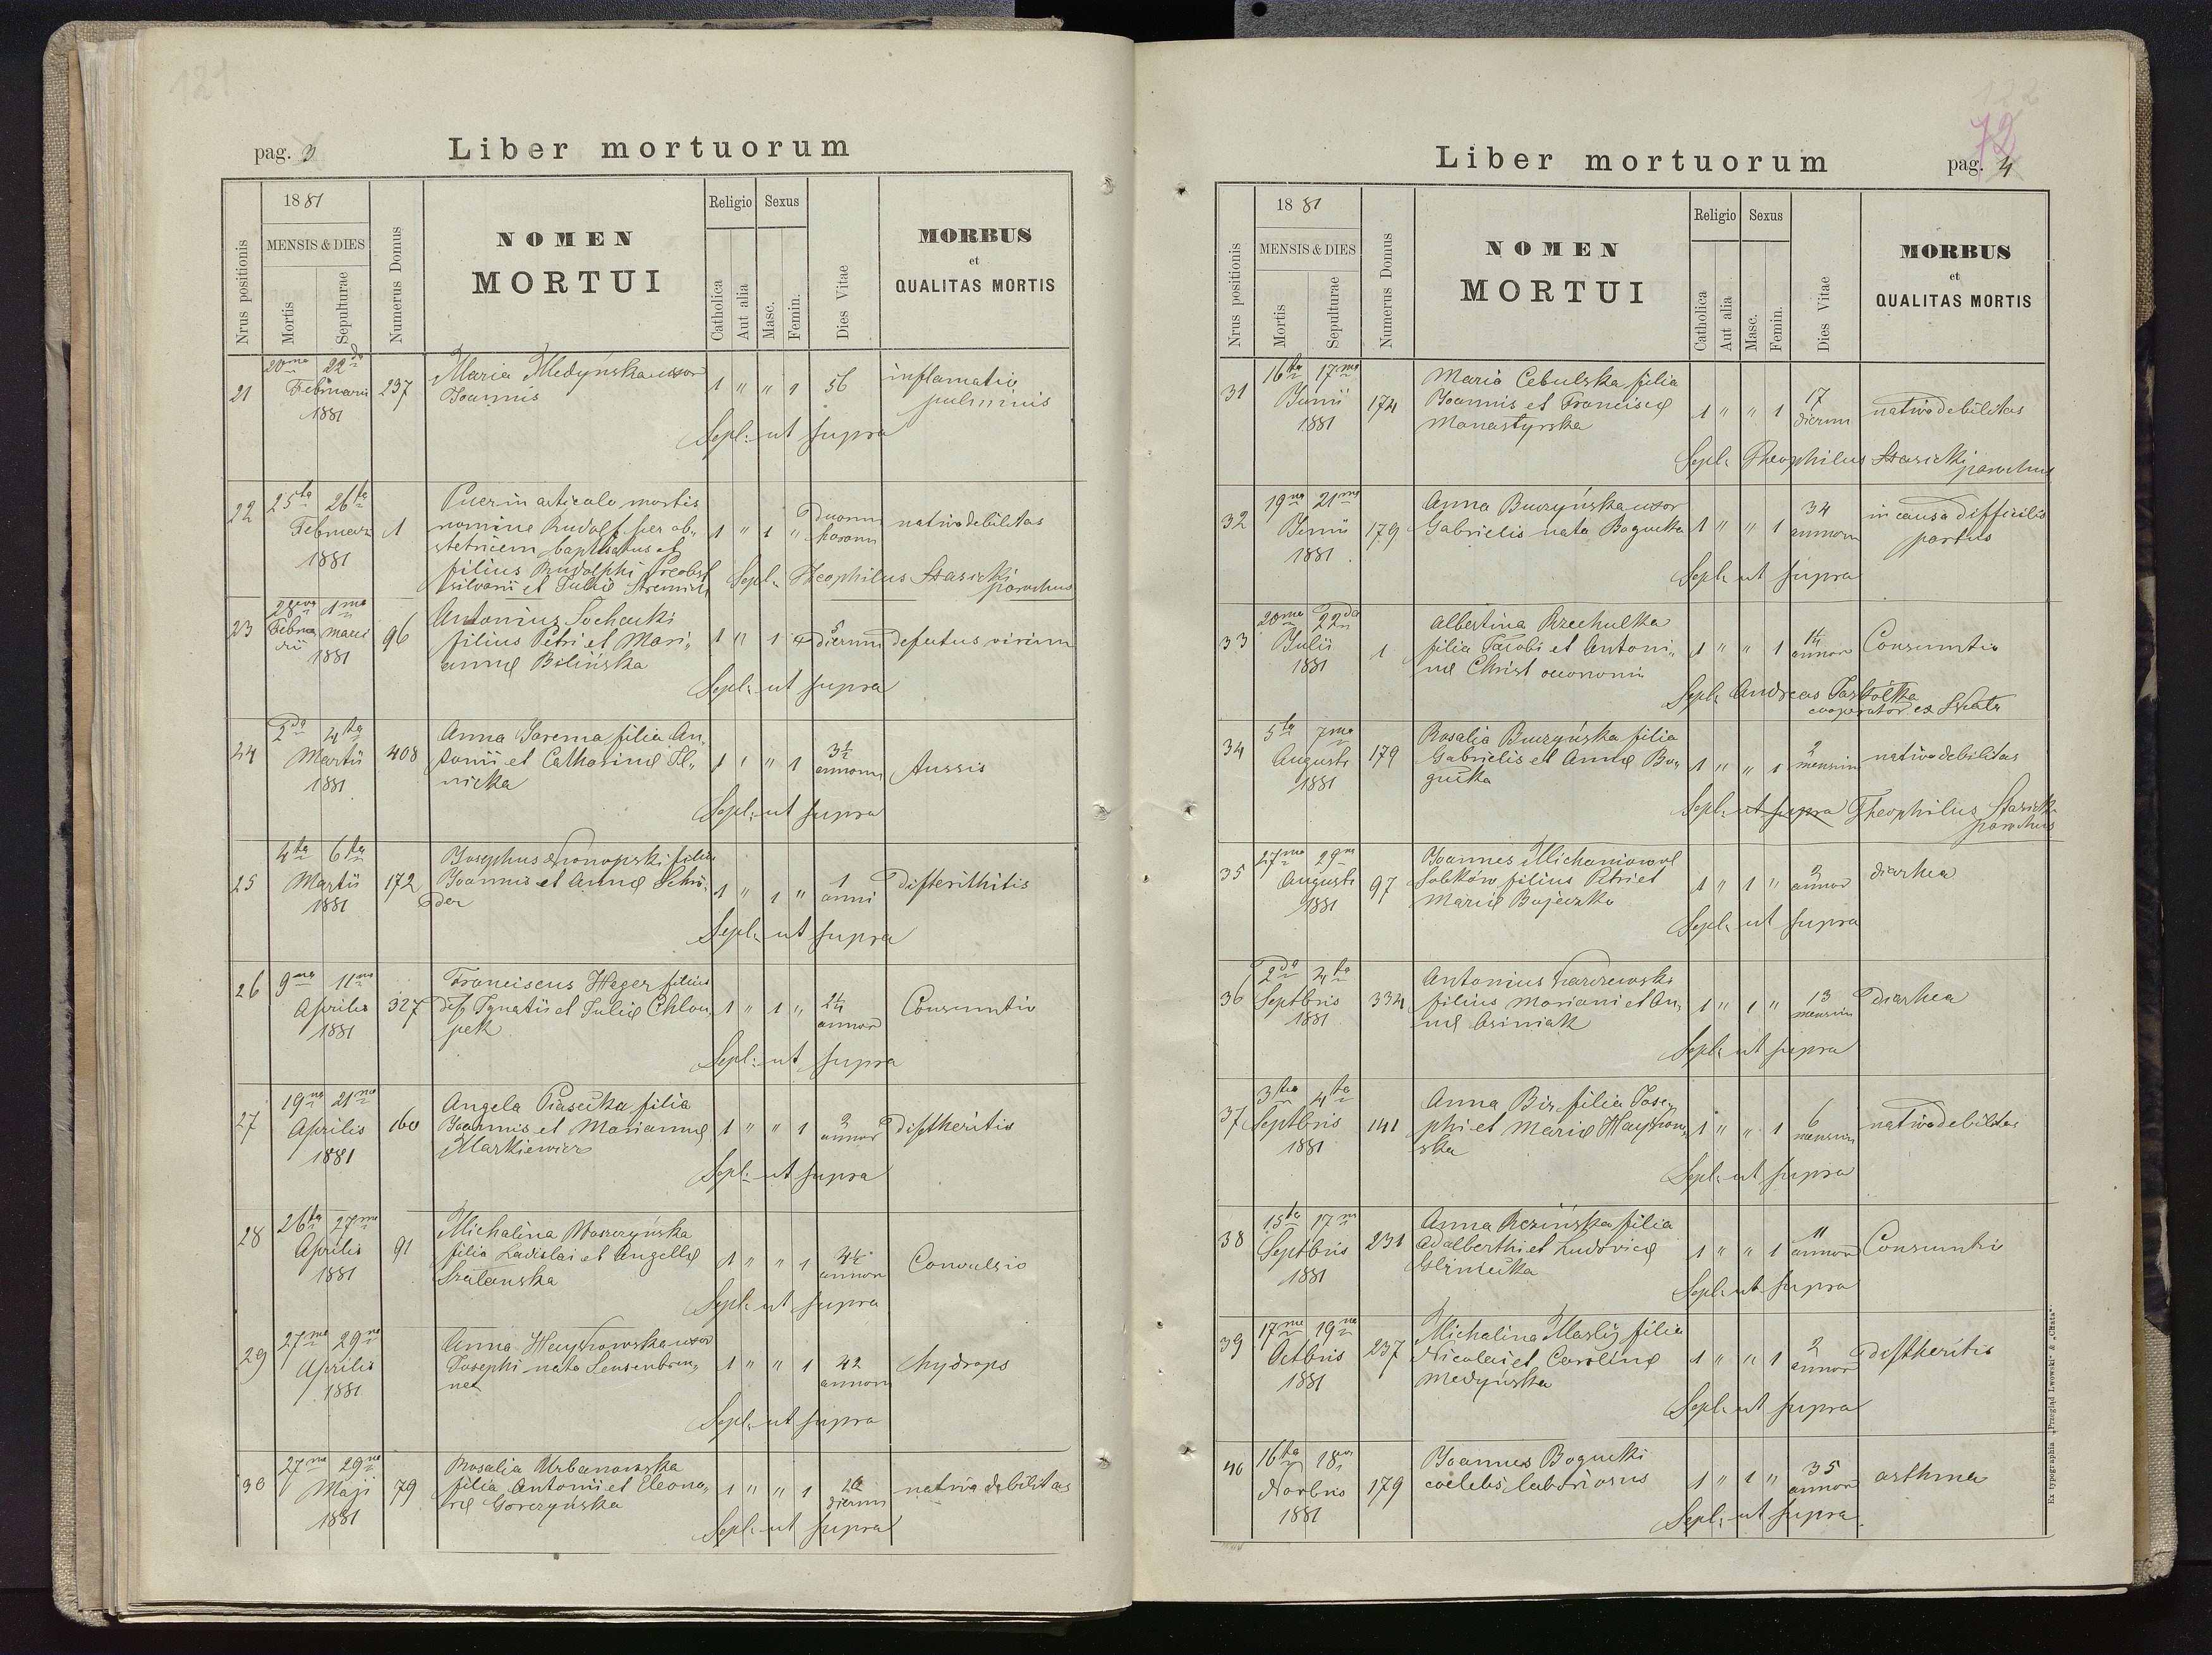 121
pag. 3
Liber mortuorum
Nrus positionis
1881
MENSIS & DIES
Mortis
Sepulturae
Numerus Domus
NOMEN
MORTUI
Religio
Catholica
Aut alia
Sexus
Masc.
Femin.
Dies Vitae
MORBUS
et
QUALITAS MORTIS
20ma 22da
21 Februarii 237 Maria Medyńska uxor 1 " " 1 56 inflamatio
1881 Joannis pulminis
Sepl: ut supra
25ta 26ta Puer in articulo mortis
22 Februar 1 nomine Rudolf per ob„ 1 " 1 " duorum nativa debilitas
1881 stetricem baptisatus et horarum
filius Rudolphi
silvani et Juliæ Sepl. Theophilus Stasicki
parochus
28va 1ma Antonius Sochacki
23 Februarii Marci 96 filius Petri et Mari„ 1 " 1 5 dierum defectus virium
1881 annæ Bolińska
Sepl. ut supra
2da 4ta Anna Jarema filia An„
24 Martii 408 tonii et Catharinæ Il„ 1 " " 1 3½ annorum tussis
1881 nicka
Sepl. ut supra
4ta 6ta Josephus Konopski filius
25 Martii 172 Joannis et Annæ Schrö„ 1 " 1 " 1 anni difterithitis
1881 der
Sepl. ut supra
9na 11ma Franciscus Heger filius
26 Aprilis 327 Ignatii et Juliæ Chlou„ 1 " 1 " 2¼ annor Consumtio
1881 pek
Sepl: ut supra
19na 21ma Angela Piasecka filia
27 Aprilis 160 Joannis et Mariannæ 1 " " 1 2 annor diftheritis
1881 Markiewicz
Sepl: ut supra
26ta 27ma Michalina Waszczyńska
28 Aprilis 91 filia Ladislai et Angellæ 1 " " 1 4½ annor Convulsio
1881 Szalańska
Sepl. ut supra
27ma 29na Anna Haydrowska uxor
29 Aprilis Josephi nata Sensenbren„ 1 " " 1 42 annorum hydrops
1881 ner
Sepl. ut supra
27ma 29na Rosalia Urbanowska
30 Maji 79 filia Antonii et Eleono„ 1 " " 1 dierum nativa debilitas
1881 ræ Gorczyńska
Sepl. ut supra
122
72
Liber mortuorum
pag. 4
Nrus positionis
1881
MENSIS & DIES
Mortis
Sepulturae
Numerus Domus
NOMEN
MORTUI
Religio
Catholica
Aut alia
Sexus
Masc.
Femin.
Dies Vitae
MORBUS
et
QUALITAS MORTIS
16ta 17ma Maria Cebulska filia
31 Junii 174 Joannis et Franciscæ 1 " " 1 17 dierum nativa debilitas
1881 Monastyrska
Sepl. Theophilus Stasicki
parochus
19na 21ma Anna Buczyńska uxor
32 Junii 179 Gabrielis nata Bogucka 1 " " 1 34 annorum in causa difficilis
1881 partus
Sepl. ut supra
20ma 22da Albertina Rzechulka
33 Julii 1 filia Jacobi et Antoni„ 1 " " 1 annor Consumtio
1881 næ Christ oeconomi
Sepl. Andreas Jaskółka
cooperator ex Skała
5ta 7ma Rosalia Buczyńska filia
34 Augusti 179 Gabrielis et Annæ Bo„ 1 " " 1 2 mensium nativa debilitas
1881 gucka
Sepl. ut supra Theophilus Stasicki
parochus
27ma 29na Joannes
35 Augusti 97 Sobków filius Petri et 1 " 1 " 2 annor diarhea
1881 Mariæ Bojeczko
Sepl. ut supra
2da 4ta Antonius Karczewski
36 Septbris 334 filius Mariani et An„ 1 " 1 " 13 mensium diarhea
1881 næ Osiniak
Sepl. ut supra
3tia 4ta Anna Bir filia Jose„
37 Septbris 141 phi et Mariæ Haydrow„ 1 " " 1 6 mensium nativa debilitas
1881 ska
Sepl. ut supra
15ta 17ma Anna Rezińska filia
38 Septbris 231 Adalberthi et Ludovicæ 1 " " 1 11 annor Consumtio
1881 Olinicka
Sepl. ut supra
17ma 19na Michalina Masły filia
39 Octbris 237 Nicolai et Carolinæ 1 " " 1 2 annor diftheritis
1881 Medyńska
Sepl. ut supra
16ta 18va Joannes Bogucki
40 Novbris 179 coelebs laboriosus 1 " 1 " 35 annor asthma
1881
Sepl. ut supra
Ex typographia „Przegląd Lwowski" & „Chata".